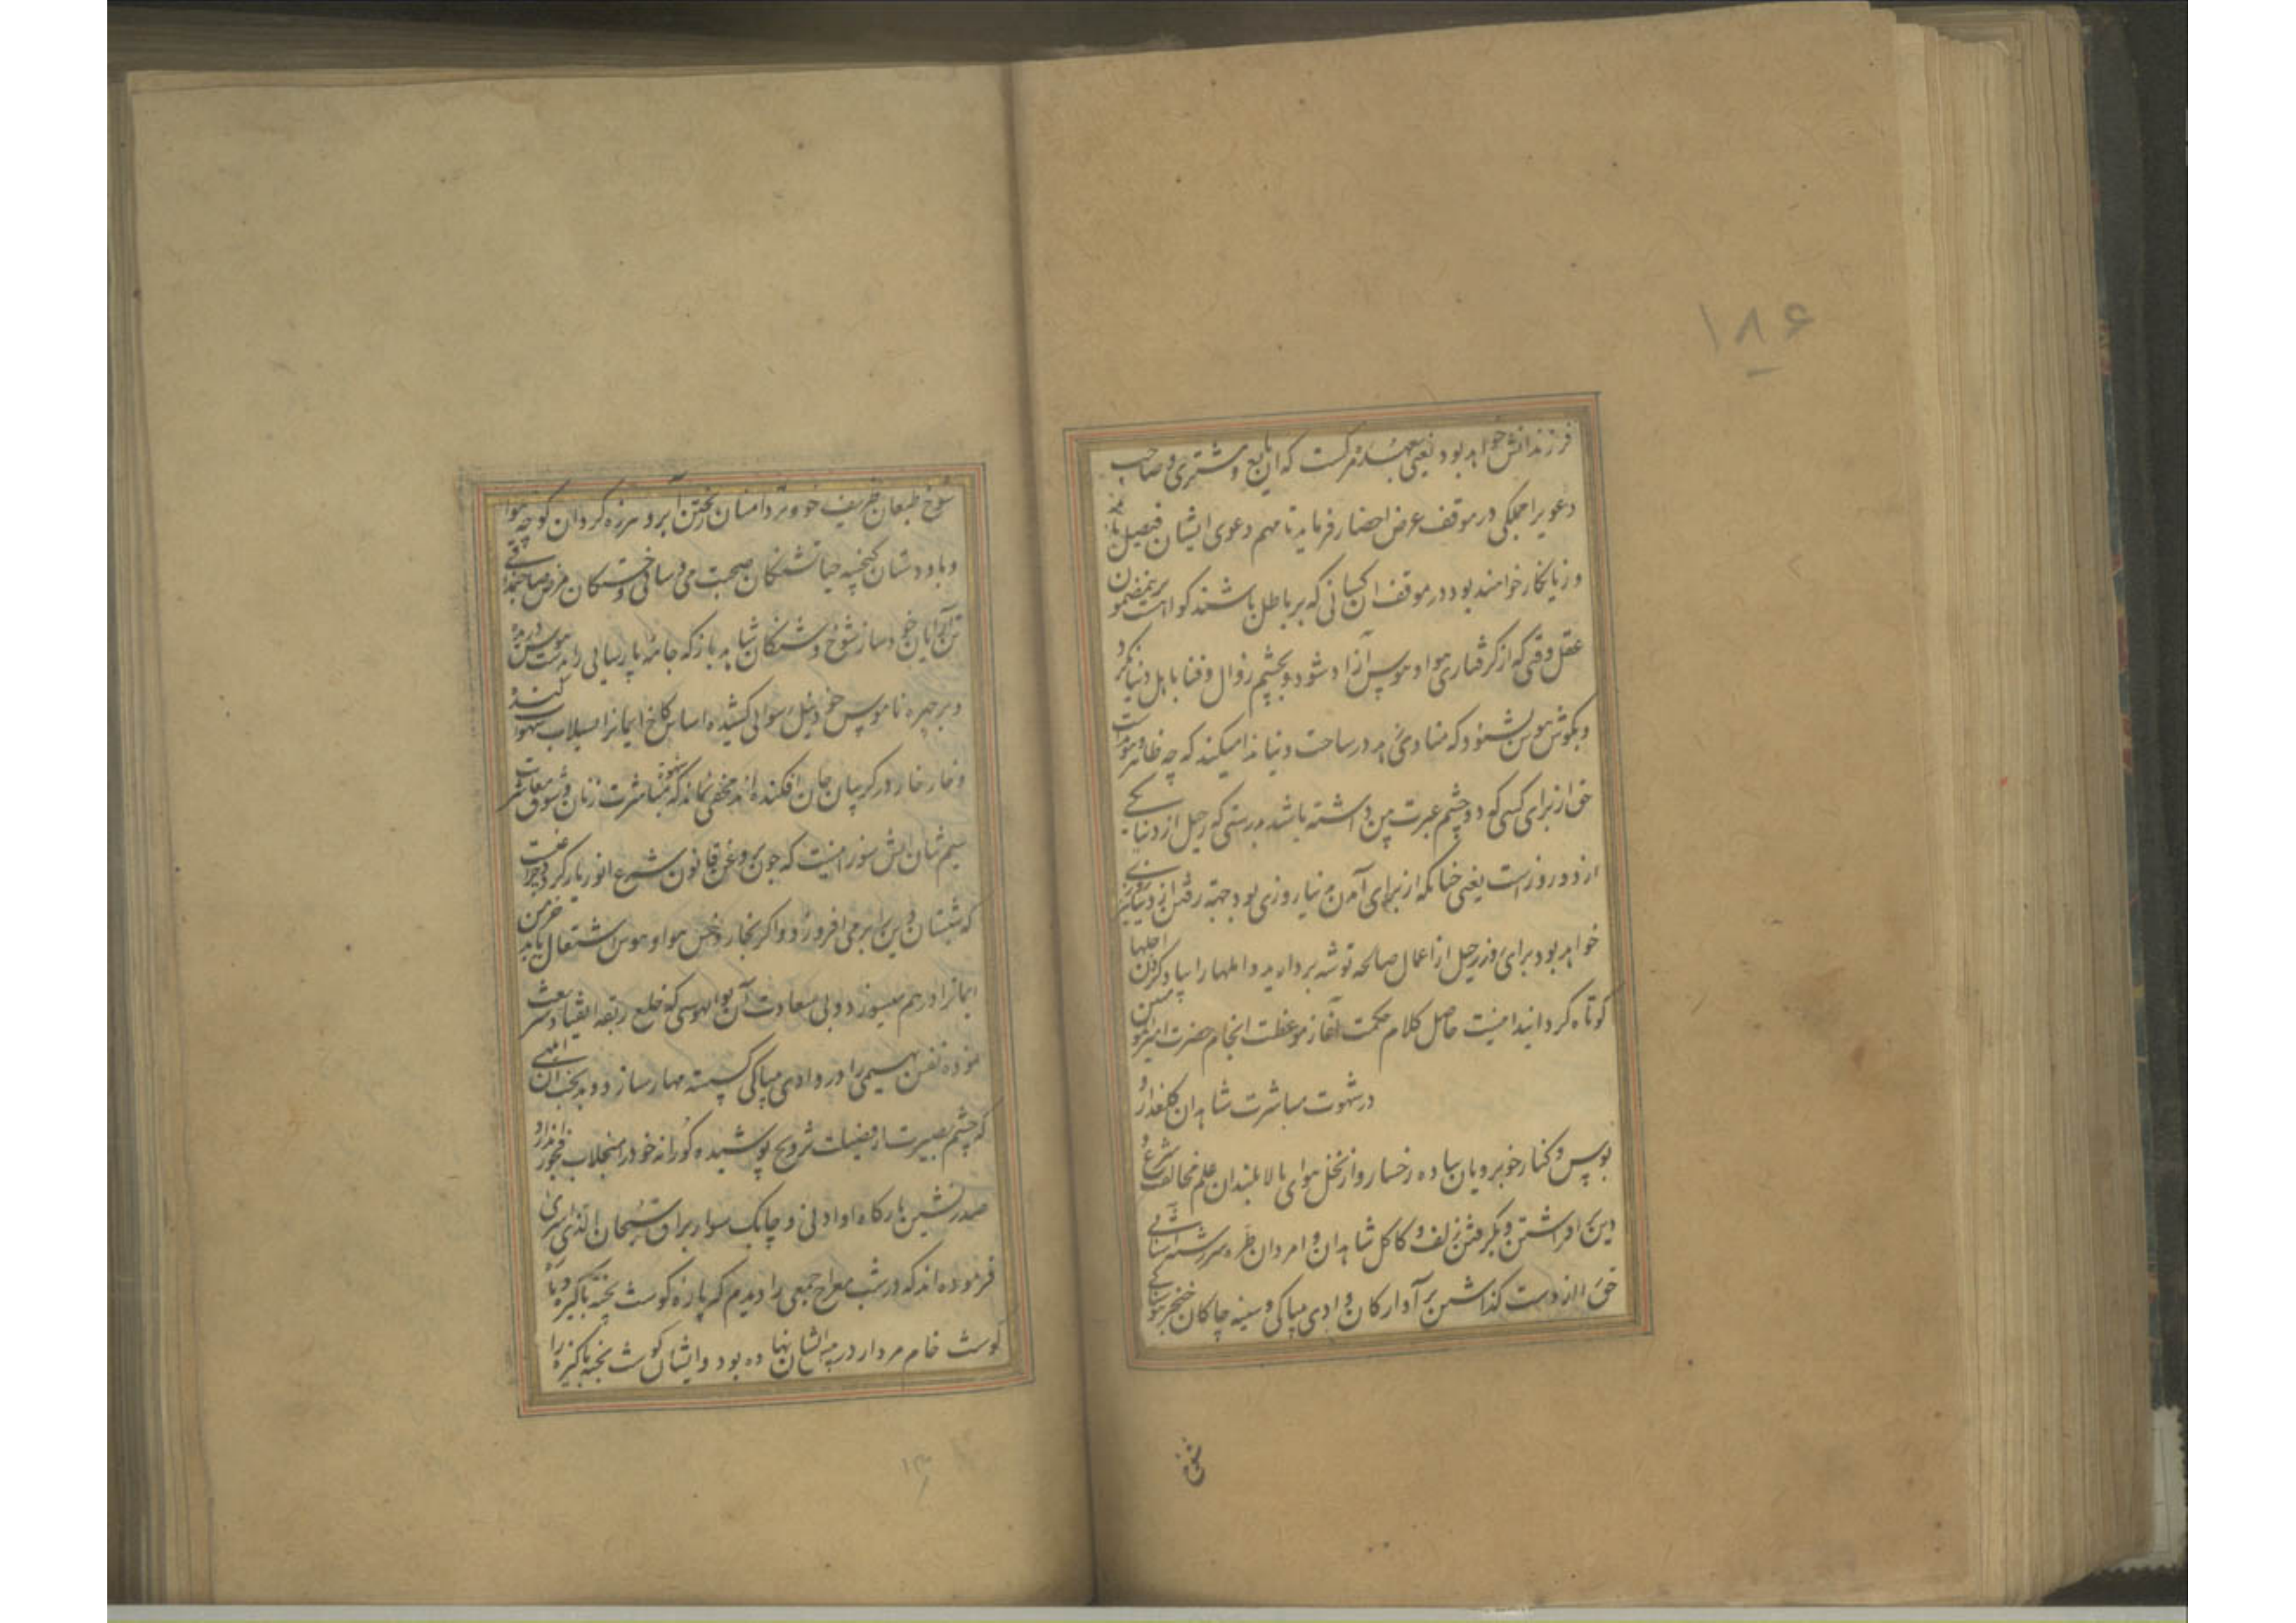 ۱۸۶
فرزندانش خواهد بود یعنی بعهده مرگست که این بایع و مشتری و صاحب
دعویرا جملگی در موقف عرض احضار فرماید تا مهم دعوی ایشان فیصل یابد
و زیانکار خواهند بود در موقف آن کسانی که بر باطل باشند گواهست برینمضمون
عقل وقتی که از گرفتاری هوا و هوس آزاد شود و بچشم زوال و فنا باهل دنیا نگرد
و بگوش هوش بشنود که منادی در ساحت دنیا ندا میکند که چه ظاهر و هویداست
حق از برای کسی که دو چشم عبرت بین داشته باشد بدرستی که رحیل از دنیا یکی
از دو روزست یعنی چنانکه از برای آمدن دنیا روزی بود جهة رفتن از دنیا نیز روزی
خواهد بود برای روز رحیل از اعمال صالحه توشه بردارید و املها را بیاد کردن اجلها
کوتاه گردانید اینست حاصل کلام حکمت آغاز موعظت انجام حضرت امیر مومنین
در شهوت مباشرت شاهدان گلعذار و
بوس و کنار خوبرویان ساده رخسار و از نخل هوای بالا بلندان علم مخالفت شرع و
دین افراشتن و بگرفتن زلف و کاکل شاهدان و امردان طره سررشته آشنایی
حق را از دست گذاشتن بر آوارگان وادی بیباکی و سینه چاکان خنجر هوسناکی
شوخ
شوخ طبعان ظریف خو و تردامنان ریختن آبرو هرزه گردان کوچه هوا
و باددستان گنجینه حیا تشنگان صحبت می و ساقی و خستگان مرض صاحبمذاقی
تن آرایان خودساز شوخ و شنگان شاهدباز که جامه پارسایی را بدست هوس دریده
و بر چهره ناموس خود نیل رسوایی کشیده اساس کاخ ایمانرا بسیلاب شهوت کنده و
و خار خار در گریبان جان افکنده‌اند مخفی نماند که شهوت مباشرت زنان و شوق معاشرت
سیم‌تنان آتش سوزانیست که چون بروغن قانون شرع انور بار گردد چراغیست
که شبستان دین را بر می‌افروزد و اگر بخار و خس هوا و هوس اشتعال یابد خرمن
ایمانرا در هم میسوزد و بی سعادت آن بوالهوسی که خلع ربقه انقیاد شریعت
نموده نفس بهیمی را در وادی بیباکی گسسته مهار سازد و بدبخت آن ابلهی
که چشم بصیرت از فضیلت تزویج پوشیده کورانه خود را در منجلاب فجور اندازد و
صدرنشین بارگاه او ادنی و چابک سوار براق سبحان الذی اسری
فرموده‌اند که در شب معراج جمعی را دیدم که پارهٔ گوشت پخته پاکیزه و پاره
گوشت خام مردار در پیش ایشان نهاده بود و ایشان گوشت پخته پاکیزه را